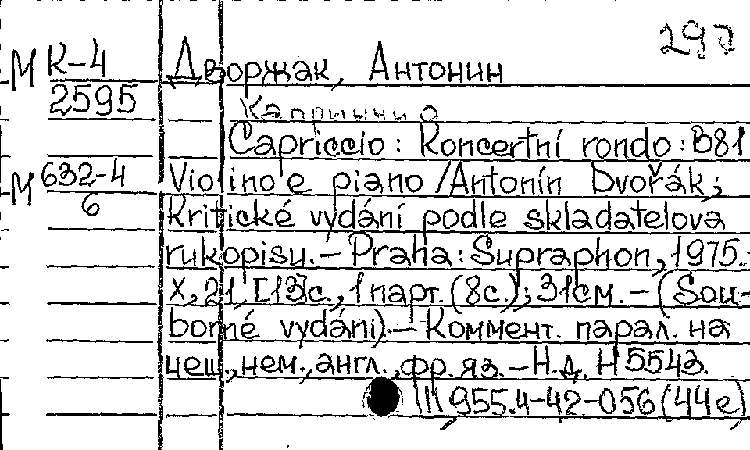 297
М К-4 Дворжак, Антонин
2595 Каприччио
Capriccio: Koncertní rondo: B81
М 632-4 Violino e piano / Antonín Dvořák;
6 Kritické vydání podle skladatelova
rukopisu. – Praha: Supraphon, 1975. –
X, 21, [13]с., 1 парт. (8с.); 31см. – (Sou-
borné vydání). – Коммент. парал. на
чеш., нем., англ., фр. яз. – Н.д. H5543.
955.4-42-056 (44е)